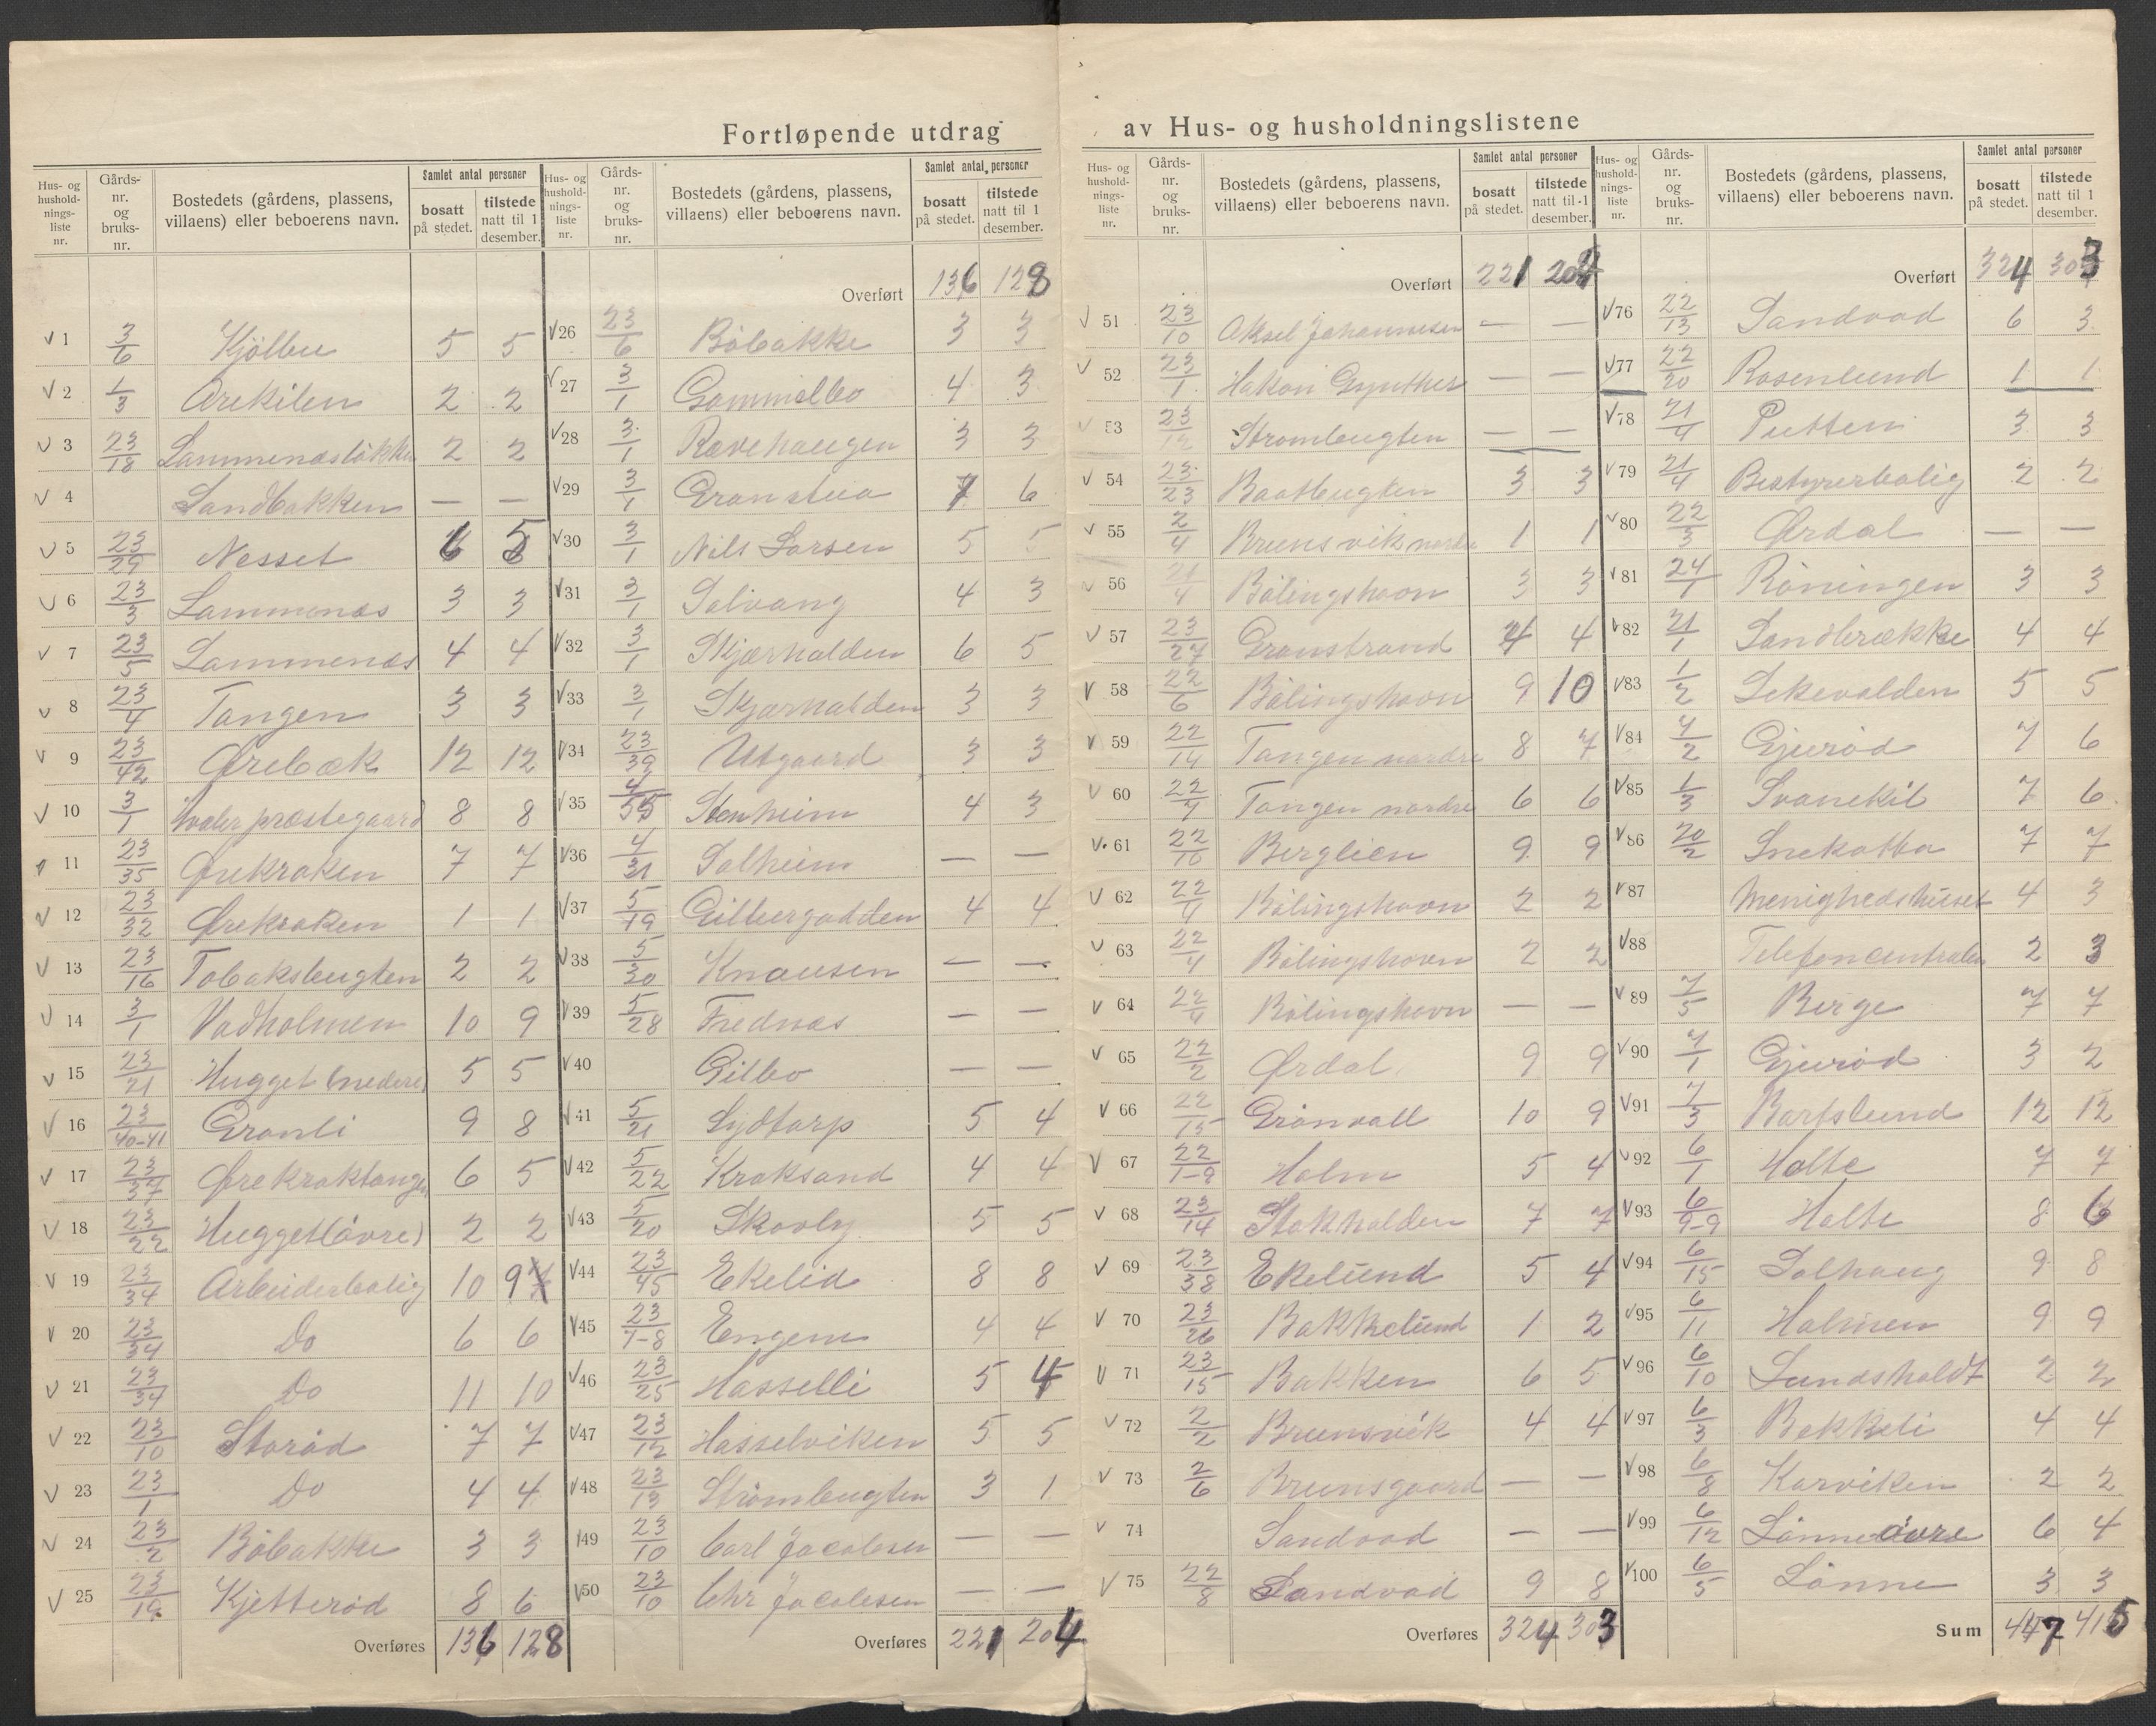 Fortløpende utdrag av Hus- og husholdningslistene
Hus- og hushold-nings-liste nr.
Gårds-nr. og bruks-nr.
Bostedets (gårdens, plassens, villaens) eller beboerens navn.
Samlet antal personer
bosatt på stedet.
tilstede natt til 1 desember.
V 1 3/6 Kjölbu 5 5
V 2 1/3 Arekilen 2 2
V 3 23/18 Lammenæsløkka 2 2
V 4 Sandbakken — —
V 5 23/29 Nesset 6 5
V 6 23/3 Lammenæs 3 3
V 7 23/5 Lammenæs 4 4
V 8 23/4 Tangen 3 3
V 9 23/42 Ørebæk 12 12
V 10 3/1 Hvaler præstegaard 8 8
V 11 23/35 Ørekroken 7 7
V 12 23/32 Ørekroken 1 1
V 13 23/16 Tobaksbugten 2 2
V 14 3/1 Vadholmen 10 9
V 15 23/21 Hugget (nedere) 5 5
V 16 23/40-41 Granli 9 8
V 17 23/37 Ørekroktangen 6 5
V 18 23/22 Hugget (övre) 2 2
V 19 23/34 Arbeiderbolig 10 9
V 20 23/34 Do 6 6
V 21 23/34 Do 11 10
V 22 23/10 Storöd 7 7
V 23 23/1 Do 4 4
V 24 23/2 Böbakke 3 3
V 25 23/19 Kjetteröd 8 6
Overføres 136 128
Hus- og hushold-nings-liste nr.
Gårds-nr. og bruks-nr.
Bostedets (gårdens, plassens, villaens) eller beboerens navn.
Samlet antal personer
bosatt på stedet.
tilstede natt til 1 desember.
Overført 136 128
V 26 23/6 Böbakke 3 3
V 27 3/1 Gammelbo 4 3
V 28 3/1 Rævehaugen 3 3
V 29 3/1 Granstua 7 6
V 30 3/1 Nils Larsen 5 5
V 31 3/1 Solvang 4 3
V 32 3/1 Skjærhalden 6 5
V 33 3/1 Skjærhalden 3 3
V 34 23/39 Utgaard 3 3
V 35 4/55 Stenheim 4 3
V 36 4/31 Solheim — —
V 37 5/19 Gilbergodden 4 4
V 38 5/30 Knausen — —
V 39 5/28 Frednæs — —
V 40 Gilbo — —
V 41 5/21 Sydtorp 5 4
V 42 5/22 Kroksand 4 4
V 43 5/20 Skovly 5 5
V 44 23/45 Ekelid 8 8
V 45 23/7-8 Engen 4 4
V 46 23/25 Hasselli 5 4
V 47 23/12 Hasselviken 5 5
V 48 23/13 Strömbugten 3 1
49 23/10 Carl Jacobsen — —
V 50 23/10 Chr Jacobsen — —
Overføres 221 204
Hus- og hushold-nings-liste nr.
Gårds-nr. og bruks-nr.
Bostedets (gårdens, plassens, villaens) eller beboerens navn.
Samlet antal personer
bosatt på stedet.
tilstede natt til 1 desember.
Overført 221 204
V 51 23/10 Aksel Johannesen — —
V 52 23/1 Hakon Gynther — —
V 53 23/12 Strombugten — —
V 54 23/23 Baatbugten 3 3
V 55 2/4 Brunsvik nordre 1 1
V 56 21/4 Bölingshavn 3 3
V 57 23/27 Granstrand 4 4
V 58 22/6 Bölingshavn 9 10
V 59 22/14 Tangen nordre 8 7
V 60 22/7 Tangen nordre 6 6
V 61 22/16 Berglien 9 9
V 62 22/4 Bölingshavn 2 2
V 63 22/4 Bölingshavn 2 2
V 64 22/4 Bölingshavn — —
V 65 22/2 Ørdal 9 9
V 66 22/15 Grönvall 10 9
V 67 22/1-9 Holm 5 4
V 68 23/14 Stokholden 7 7
V 69 23/38 Ekelund 5 4
V 70 23/26 Bakkelund 1 2
V 71 23/15 Bakken 6 5
V 72 2/2 Brunsvik 4 4
V 73 2/6 Brunsgaard — —
V 74 Sandvad — —
V 75 22/8 Sandvad 9 8
Overføres 324 303
Hus- og hushold-nings-liste nr.
Gårds-nr. og bruks-nr.
Bostedets (gårdens, plassens, villaens) eller beboerens navn.
Samlet antal personer
bosatt på stedet.
tilstede natt til 1 desember.
Overført 324 303
V 76 22/13 Sandvad 6 3
V 77 22/20 Rosenlund 1 1
V 78 21/4 Putten 3 3
V 79 21/4 Bestyrerbolig 2 2
V 80 22/3 Ørdal — —
V 81 24/1 Röningen 3 3
V 82 21/1 Sandbrække 4 4
V 83 1/2 Lekevolden 5 5
V 84 7/2 Gjeröd 7 6
V 85 1/3 Svanekil 7 6
V 86 20/2 Snekotta 7 7
V 87 Menighedshuset 4 3
V 88 Telefoncentralen 2 3
V 89 7/5 Berge 7 7
V 90 7/1 Gjeröd 3 2
V 91 7/3 Barfslund 12 12
V 92 6/1 Holte 7 7
V 93 6/9-9 Holte 8 6
V 94 6/15 Solhaug 9 8
V 95 6/11 Holmen 9 9
V 96 6/10 Lundsholdt 2 2
V 97 6/3 Bekkeli 4 4
V 98 6/8 Korviken 2 2
V 99 6/12 Lönne övre 6 4
V 100 6/5 Lönne 3 3
Sum 447 415